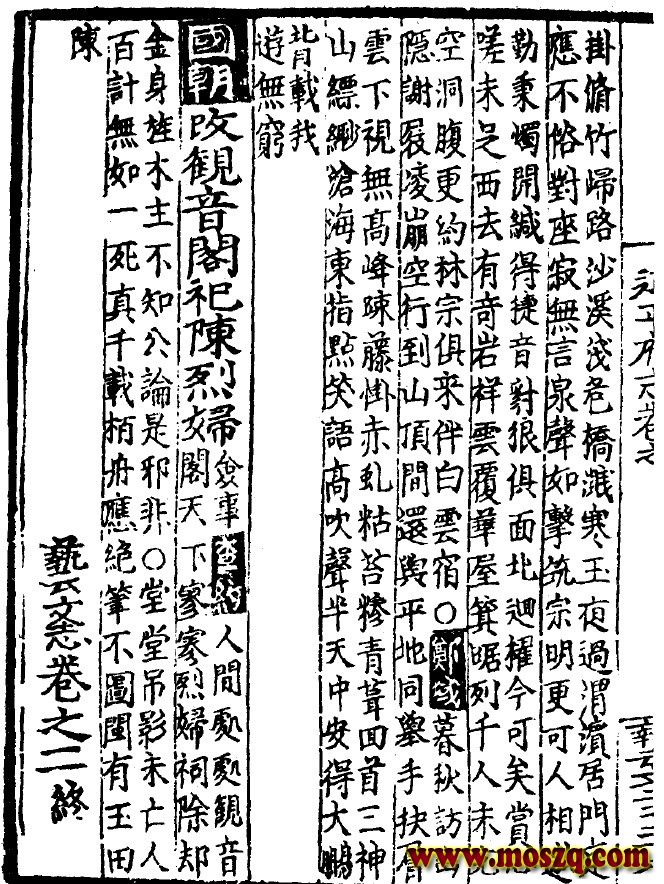 掛脩竹歸路沙溪淺危橋濺寒玉夜過渭濱居門
應不俗對座寂無言泉聲如擊筑宗明更可人相
勤秉燭開緘得捷音豺狼俱面北迴櫂今可矣賞
嗟未足西去有奇岩祥雲覆華屋箕踞列千人未
空洞腹更約林宗俱來伴白雲宿○鄭域暮秋訪
隱謝屐凌崩空行到山頂間還與平地同舉手抉
雲下視無高峰踈藤掛赤虬粘苔糝青茸回首三神
山縹緲滄海東指點笑語高吹聲半天中安得大鵬
背載我
遊無窮
國朝改觀音閣祀陳烈婦僉事
人間䖏䖏觀音
閣天下寥寥烈婦祠除却
金身旌木主不知公論是邪非○堂堂吊影未亡人
百計無如一死真千載栢舟應絕筆不圖閩有玉田
陳
藝文志卷之二終
www.moszq.com